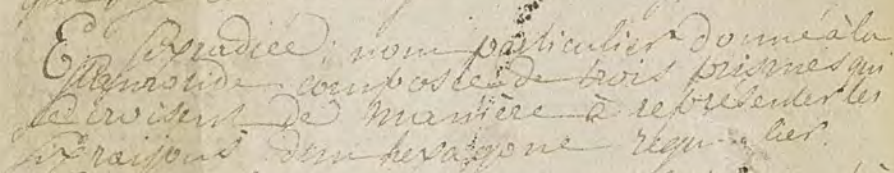 E. Sexradiée; nom particulier donné à la
Staurotide composée de trois prismes qui
se croisent de manière à représenter les
six raisons d'un hexagone régulier.